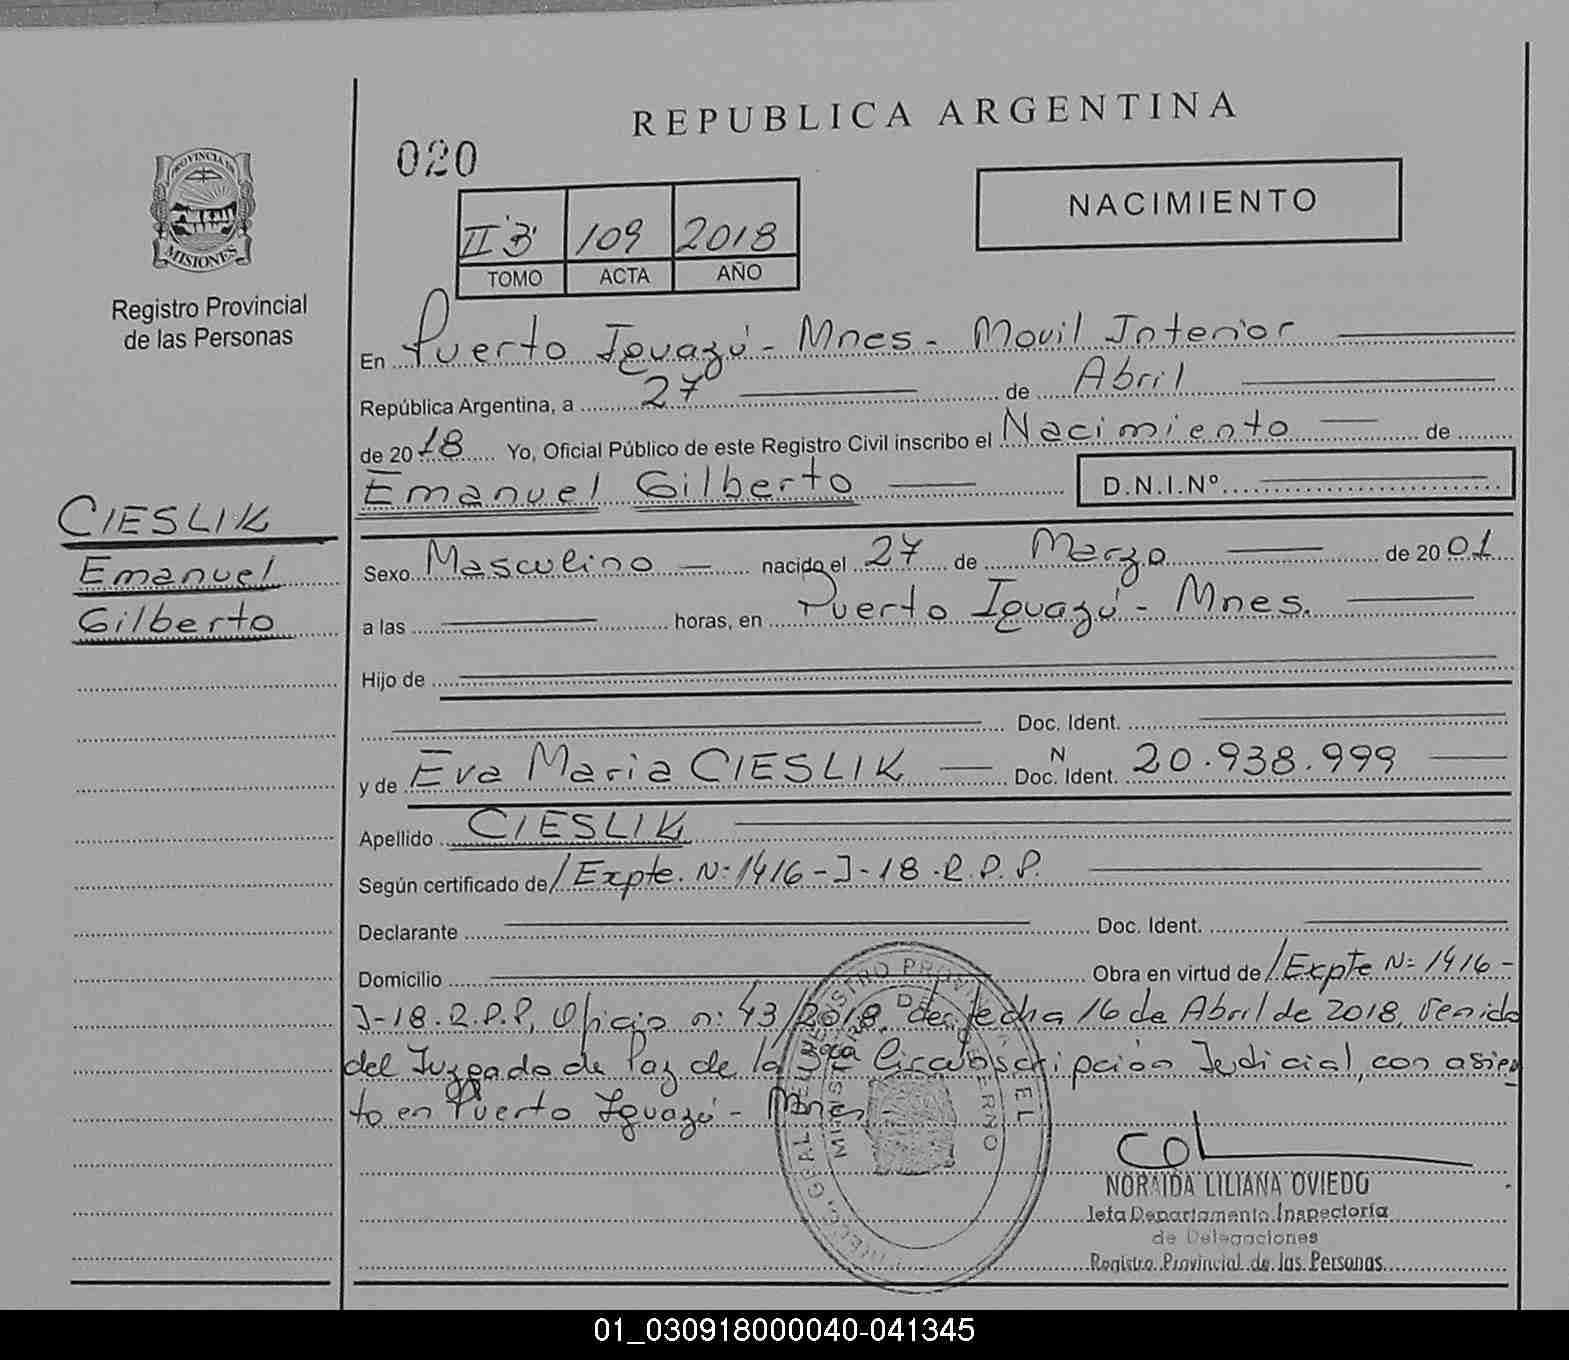 REPUBLICA ARGENTINA
020
NACIMIENTO
PROVINCIA DE
MISIONES
II "B" 109 2018
TOMO ACTA AÑO
Registro Provincial
de las Personas
En Puerto Iguazú - Mnes - Movil Interior
República Argentina, a 27 de Abril
de 2018 Yo, Oficial Público de este Registro Civil inscribo el Nacimiento de
Emanuel Gilberto D.N.I.Nº
CIESLIK
Emanuel
Gilberto
Sexo Masculino nacido el 27 de Marzo de 2001
a las horas, en Puerto Iguazú - Mnes.
Hijo de
Doc. Ident.
y de Eva Maria CIESLIK Doc. N Ident. 20.938.999
Apellido CIESLIK
Según certificado de/ Expte. N: 1416-J-18.R.P.P.
Declarante Doc. Ident.
Domicilio Obra en virtud de/ Expte N: 1416-
J-18.R.P.P, Oficio n: 43/2018, de fecha 16 de Abril de 2018, venido
del Juzgado de Paz de la 3ra Circunscripción Judicial, con asien
to en Puerto Iguazú - Mnes
DIREC. GRAL. DEL REGISTRO PROVINCIAL DE
MINIST DE GOBIERNO
NORAIDA LILIANA OVIEDO
Jefa Departamento Inspectoría
de Delegaciones
Registro Provincial de las Personas
01_030918000040-041345